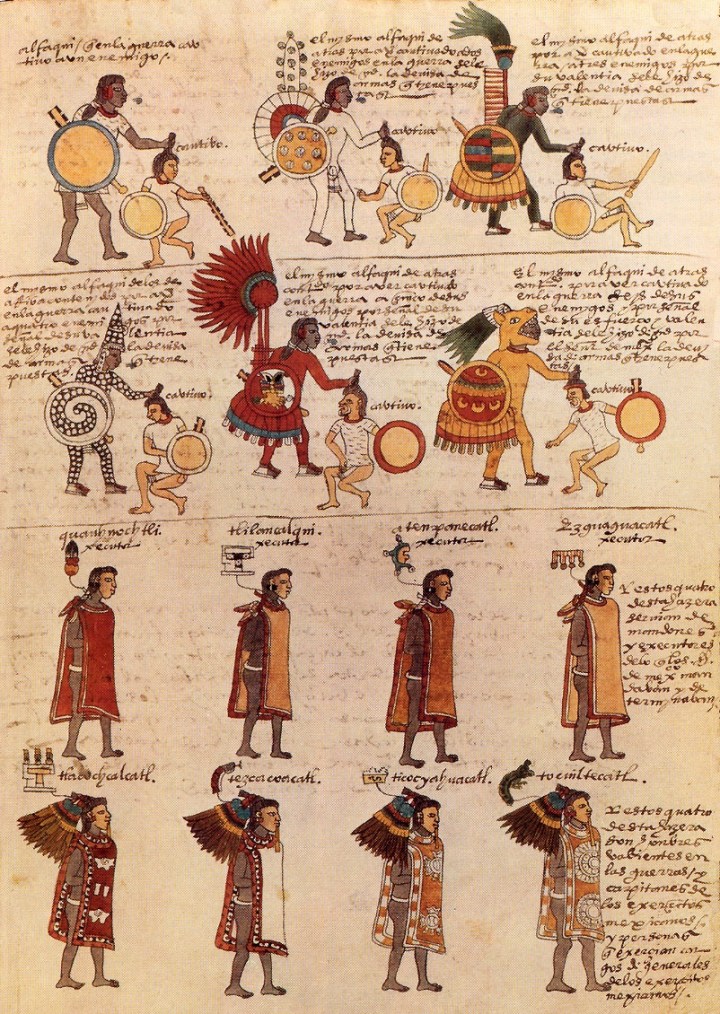 alfaqui / q̃ en la guerra cau
tivo a un enemigo /.
cautivo.
el mismo alfaqui de
atras por a cautivado dos
enemigos en la guerra se le
hizo de gd. la devisa de
armas q̃ tiene pues
tas
cautivo
el mysmo alfaqui de atras
por a cautivado en la gue
rra, a tres enemigos por
su valentia se le hizo de
gd. la devisa de armas
q̃ tiene puestas
cautivo.
el mismo alfaqui de los de
atras contenidos por a
en la guerra cautivado
a quatro enemigos
señal de su valentia
se le hizo de gd la devisa
de armas q̃ tiene
puestas
cautivo.
el mismo alfaqui de atras
por aver cautivado
en la guerra a cinco
enemigos por señal de su
valentia se le hizo de
gd la devisa de
armas q̃ tiene
puestas
cautivo.
el mismo alfaqui de atras
por aver cautivado
en la guerra seys de sus
enemigos, por señal
de su valen
tia se le hizo de gd por
el señor de mexico la devi
sa de armas q̃ tiene pues
tas
cautivo.
quauhnochtli.
xecutor
tlilancalqui.
xecutor
atenpanecatl.
xecutor
Ezguaguacatl.
xecutor
Y estos quatro
desta hazera
servian de
mandones
y executores
de lo q̃ los
de mexico man
davan y de
terminavan
tlacochcalcatl.
tezcacoacatl.
ticocyahuacatl.
tocuiltecatl.
Y estos quatro
desta hazera
son honbres
valientes en
las guerras / y
capitanes de
los exercitos
mexicanos /
y personas
q̃ exercian car
gos de generales
de los exercitos
mexicanos /.